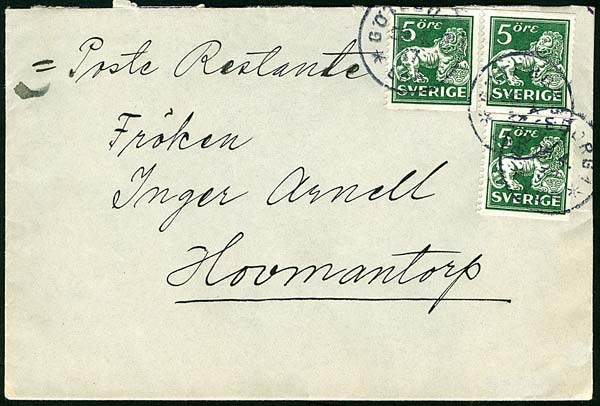 = Poste Restante
Fröken
Inger Arnell
Hovmantorp
5 ÖRE
SVERIGE
5 ÖRE
SVERIGE
5 ÖRE
SVERIGE